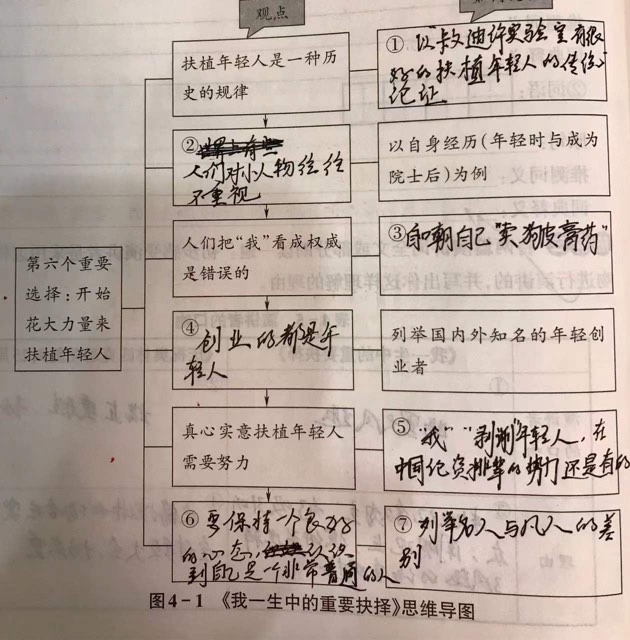 观点
扶植年轻人是一种历
史的规律
① 以卡文迪许实验室有很
好的扶植年轻人的传统
论证
②
人们对小人物往往
不重视
以自身经历(年轻时与成为
院士后)为例
人们把“我”看成权威
是错误的
③自嘲自己“卖狗皮膏药”
第六个重要
选择:开始
花大力量来
扶植年轻人
④
创业的都是年
轻人
列举国内外知名的年轻创
业者
真心实意扶植年轻人
需要努力
⑤“我”“剥削”年轻人,在
中国论资排辈的势力还是有的
⑥ 要保持一个良好
的心态,认识
到自己是一个非常普通的人
⑦ 列举名人与凡人的差
别
图4-1 《我一生中的重要抉择》思维导图